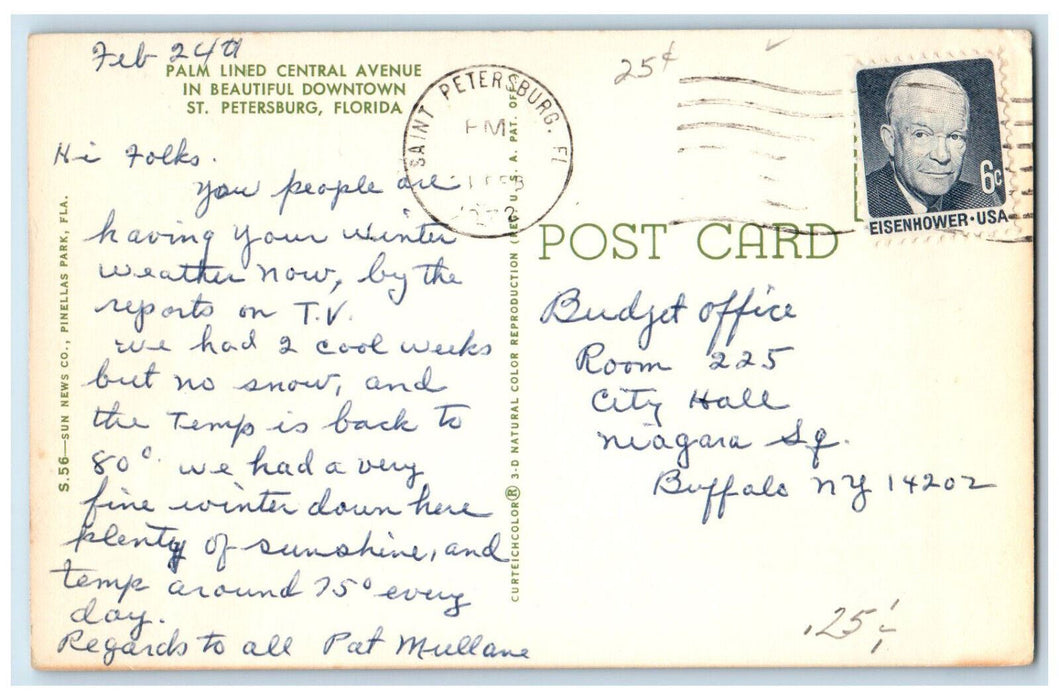 Feb 24th
PALM LINED CENTRAL AVENUE
IN BEAUTIFUL DOWNTOWN
ST. PETERSBURG, FLORIDA
Hi Folks.
you people are
having your winter
weather now, by the
reports on T.V.
we had 2 cool weeks
but no snow, and
the Temp is back to
80° we had a very
fine winter down here
plenty of sunshine, and
temp around 75° every
day.
Regards to all Pat Mullane
S.56—SUN NEWS CO., PINELLAS PARK, FLA.
CURTEICHCOLOR® 3-D NATURAL COLOR REPRODUCTION (REG. U. S. A. PAT. OFF.)
SAINT PETERSBURG, FL
PM
FEB
25¢
6c
EISENHOWER·USA
POST CARD
Budget office
Room 225
City Hall
Niagara Sq.
Buffalo NY 14202
.25